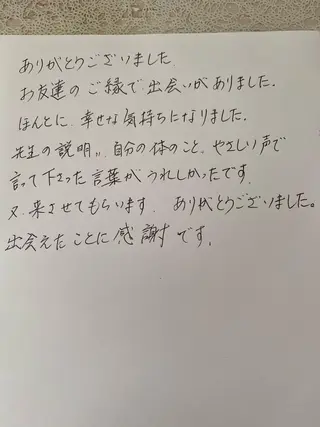 ありがとうございました
お友達のご縁で出会いがありました.
ほんとに 幸せな気持ちになりました.
先生の説明、自分の体のこと、やさしい声で
言って下さった言葉がうれしかったです
又、来させてもらいます. ありがとうございました。
出会えたことに感謝です.